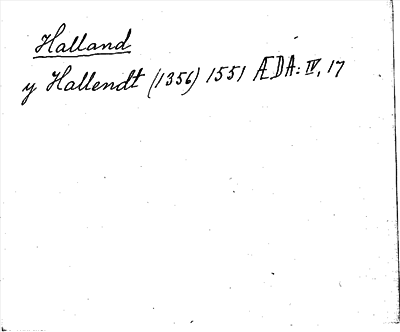 Halland
y Hallendt (1356) 1551 ÆDA: IV, 17